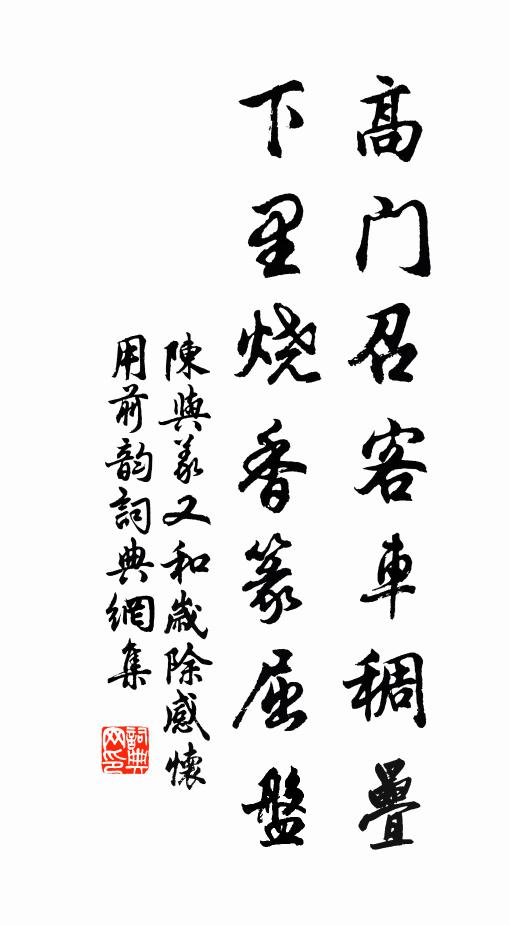 高门召客車稠疊
下里燒香篆屈盤
陳與義又和歲除感懷
用前韵詞典網集
詞典网印